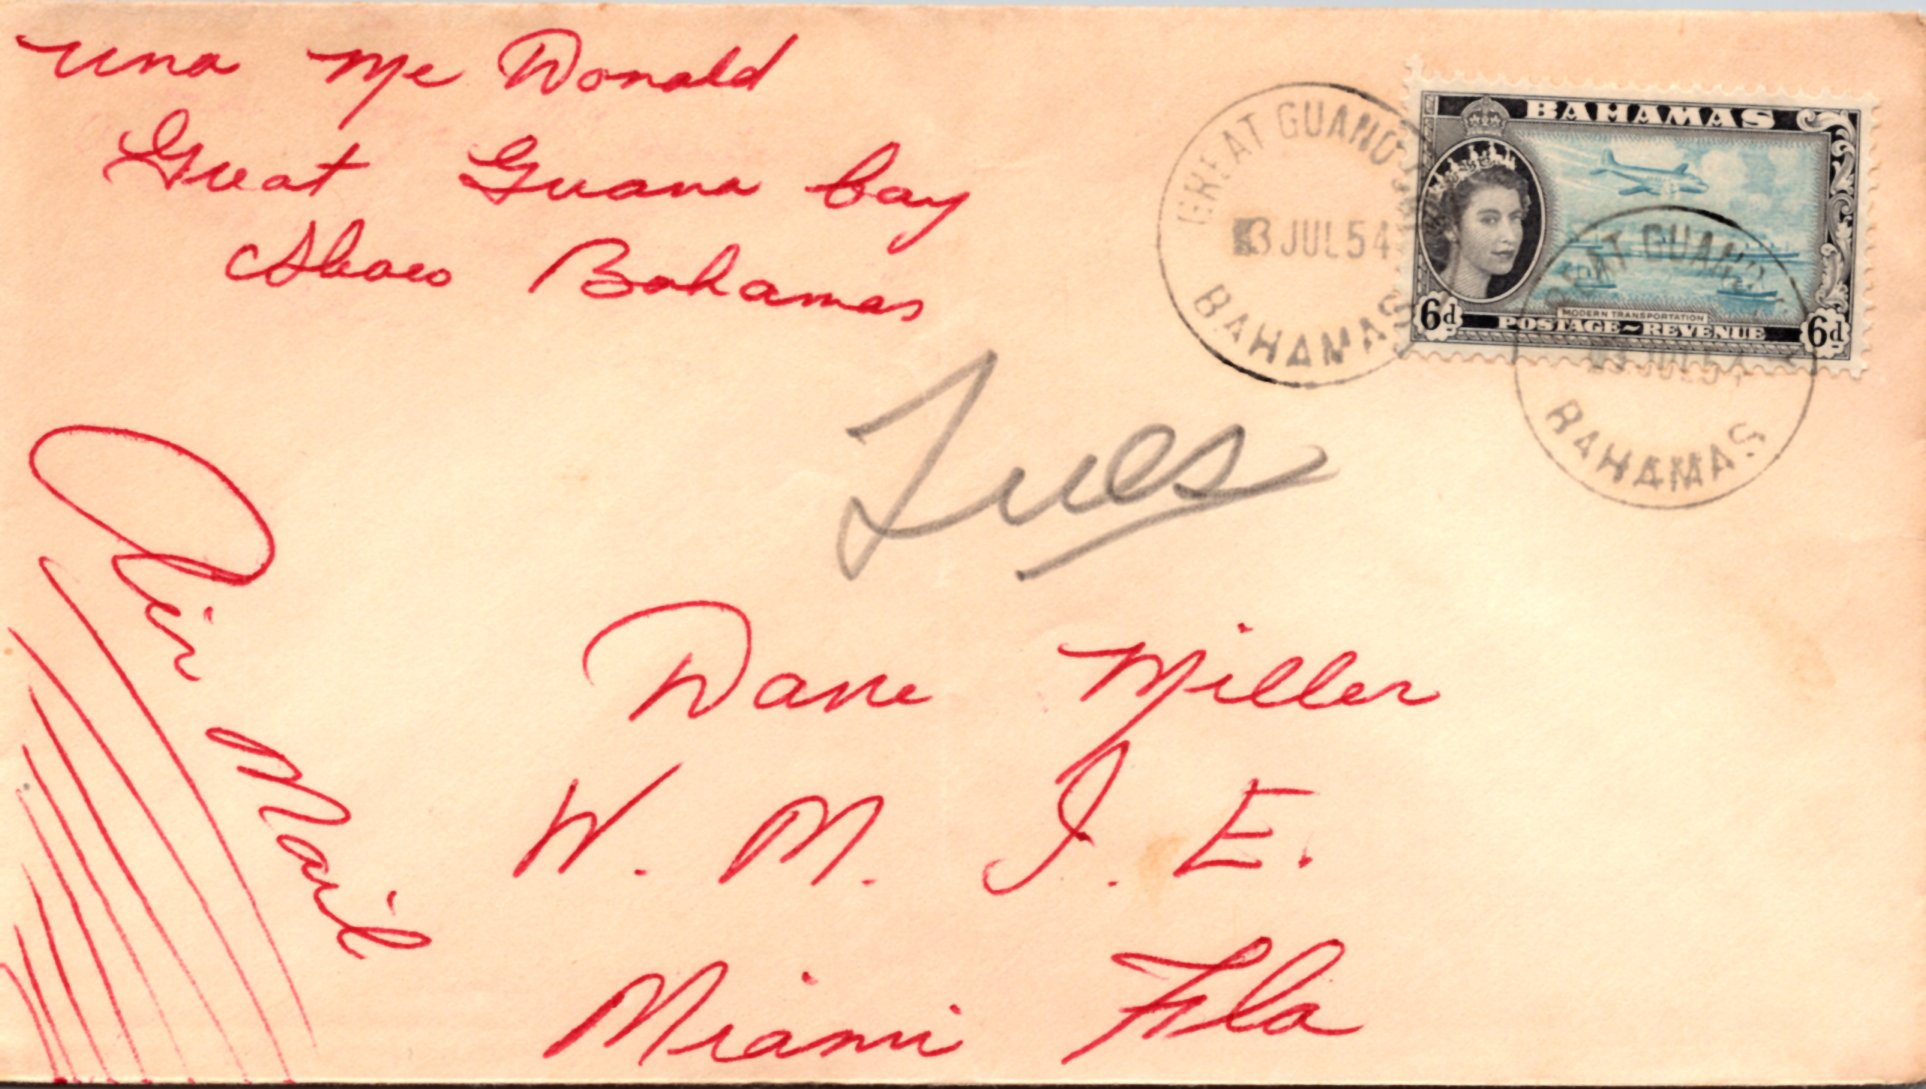 Una Mc Donald
Great Guana bay
Abaco Bahamas
GREAT GUANO
3 JUL 54
BAHAMAS
BAHAMAS
6d
MODERN TRANSPORTATION
POSTAGE~REVENUE
6d
GUAN
3 JUL 54
BAHAMAS
Tues
Air Mail
Dave Miller
W. M. I. E.
Miami Fla